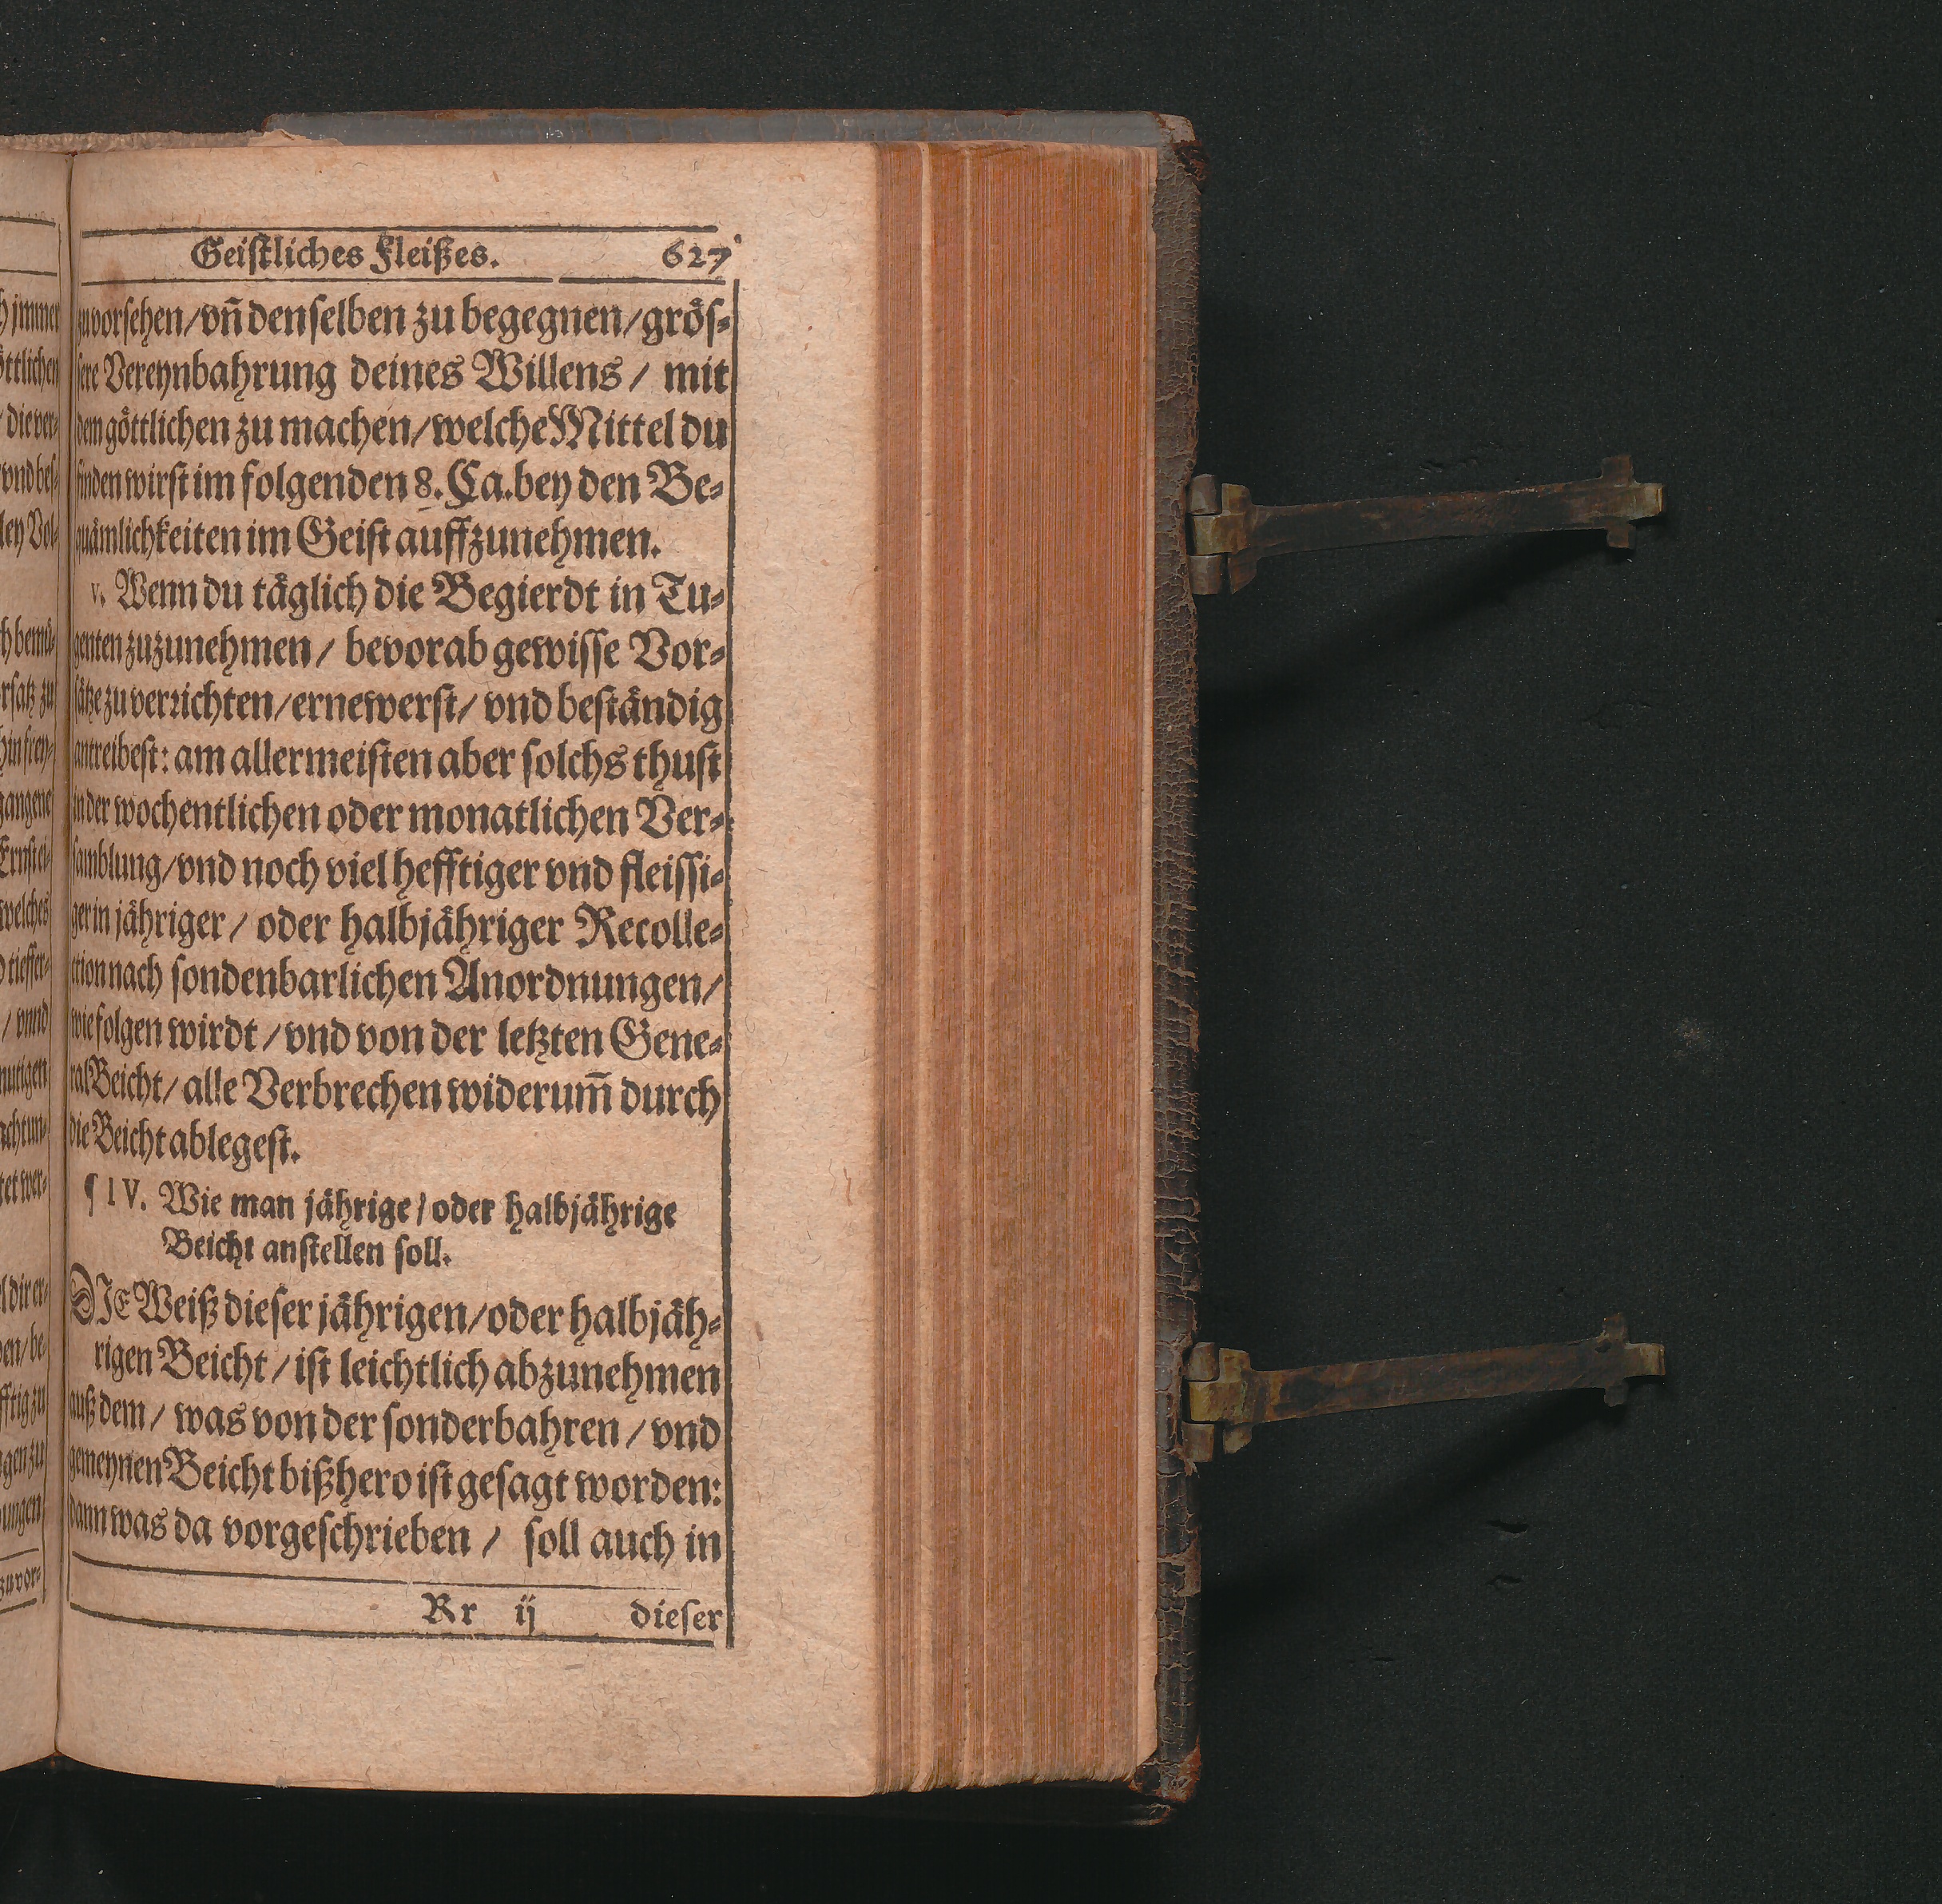 Geiſtliches Fleißes. 627
zuvorſehen/vñ denſelben zu begegnen/gröſ⸗
ſere Vereynbahrung deines Willens / mit
dem göttlichen zu machen/welche Mittel du
finden wirſt im folgenden 8. Ca. bey den Be⸗
quämlichkeiten im Geiſt auffzunehmen.
v. Wenn du täglich die Begierdt in Tu⸗
genten zuzunehmen / bevorab gewiſſe Vor⸗
ſätze zu verrichten/ernewerſt/ vnd beſtändig
antreibeſt: am allermeiſten aber ſolchs thuſt
in der wochentlichen oder monatlichen Ver⸗
ſamblung/vnd noch viel hefftiger vnd fleiſſi⸗
ger in jähriger / oder halbjähriger Recolle⸗
ction nach ſondenbarlichen Anordnungen/
wie folgen wirdt / vnd von der letzten Gene⸗
ral Beicht/ alle Verbrechen widerum̃ durch
die Beicht ablegeſt.
¶ IV. Wie man jährige / oder halbjährige
Beicht anſtellen ſoll.
DIE Weiß dieſer jährigen/oder halbjäh⸗
rigen Beicht / iſt leichtlich abzunehmen
auß dem / was von der ſonderbahren / vnd
gemeynen Beicht bißhero iſt geſagt worden:
dann was da vorgeſchrieben / ſoll auch in
Rr ij dieſer